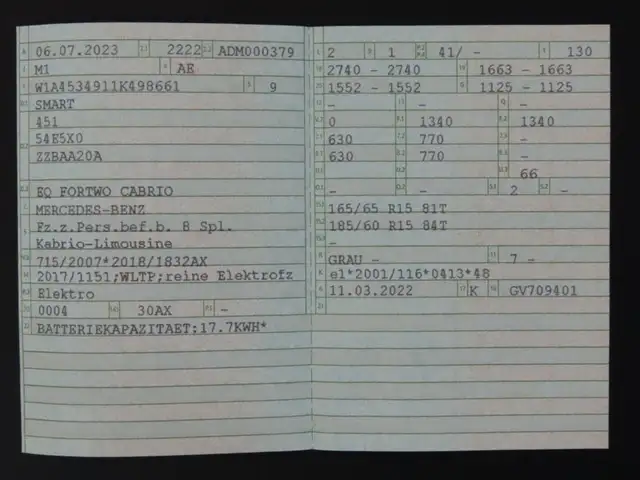 06.07.2023 2222 ADM000379
M1 AE
W1A4534911K498661 9
SMART
451
54E5X0
ZZBAA20A
EQ FORTWO CABRIO
MERCEDES-BENZ
Fz.z.Pers.bef.b. 8 Spl.
Kabrio-Limousine
715/2007*2018/1832AX
2017/1151;WLTP;reine Elektrofz
Elektro
0004 30AX -
BATTERIEKAPAZITAET:17.7KWH*
2 1 41/ - 130
2740 - 2740 1663 - 1663
1552 - 1552 1125 - 1125
- - -
0 1340 1340
630 770 -
630 770 -
66
- - 2 -
165/65 R15 81T
185/60 R15 84T
-
GRAU - 7 -
e1*2001/116*0413*48
11.03.2022 K GV709401